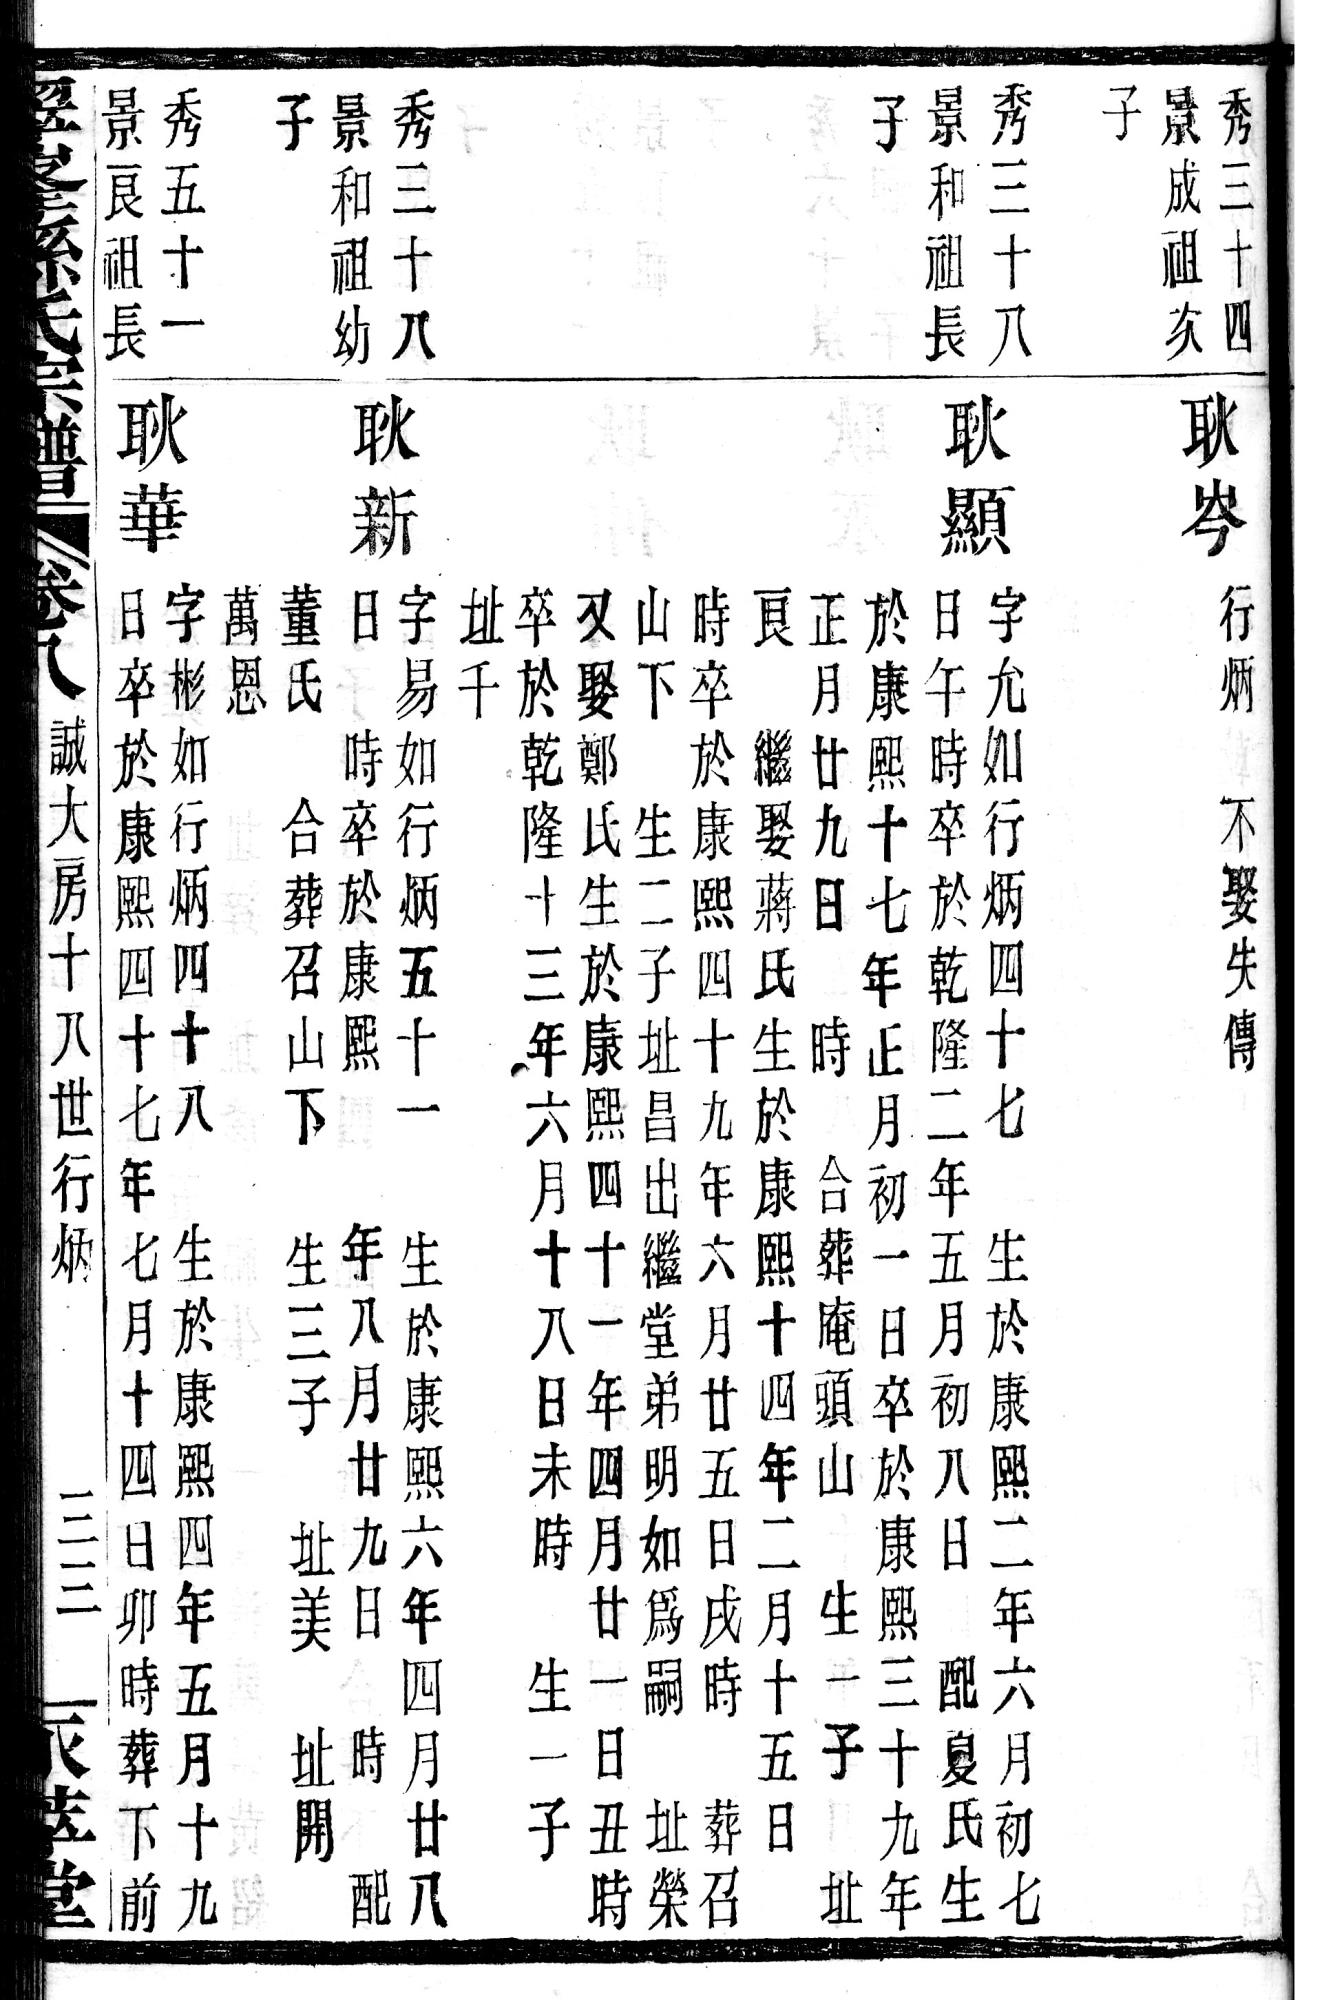 秀三十四
景成祖次
子
耿岑
行炳 不娶失傳
秀三十八
景和祖長
子
耿顯
字允如行炳四十七 生於康熙二年六月初七
日午時卒於乾隆二年五月初八日 配夏氏生
於康熙十七年正月初一日卒於康熙三十九年
正月廿九日 時 合葬庵頭山 生一子 址
良 繼娶蔣氏生於康熙十四年二月十五日
時卒於康熙四十九年六月廿五日戌時 葬召
山下 生二子址昌出繼堂弟明如爲嗣 址榮
又娶鄭氏生於康熙四十一年四月廿一日丑時
卒於乾隆十三年六月十八日未時 生一子
址千
秀三十八
景和祖幼
子
耿新
字易如行炳五十一 生於康熙六年四月廿八
日 時卒於康熙 年八月廿九日 時 配
董氏 合葬召山下 生三子 址美 址開
萬恩
秀五十一
景良祖長
耿華
字彬如行炳四十八 生於康熙四年五月十九
日卒於康熙四十七年七月十四日卯時葬下前
孫氏宗譜 卷八 誠大房十八世行炳 三三 萃堂